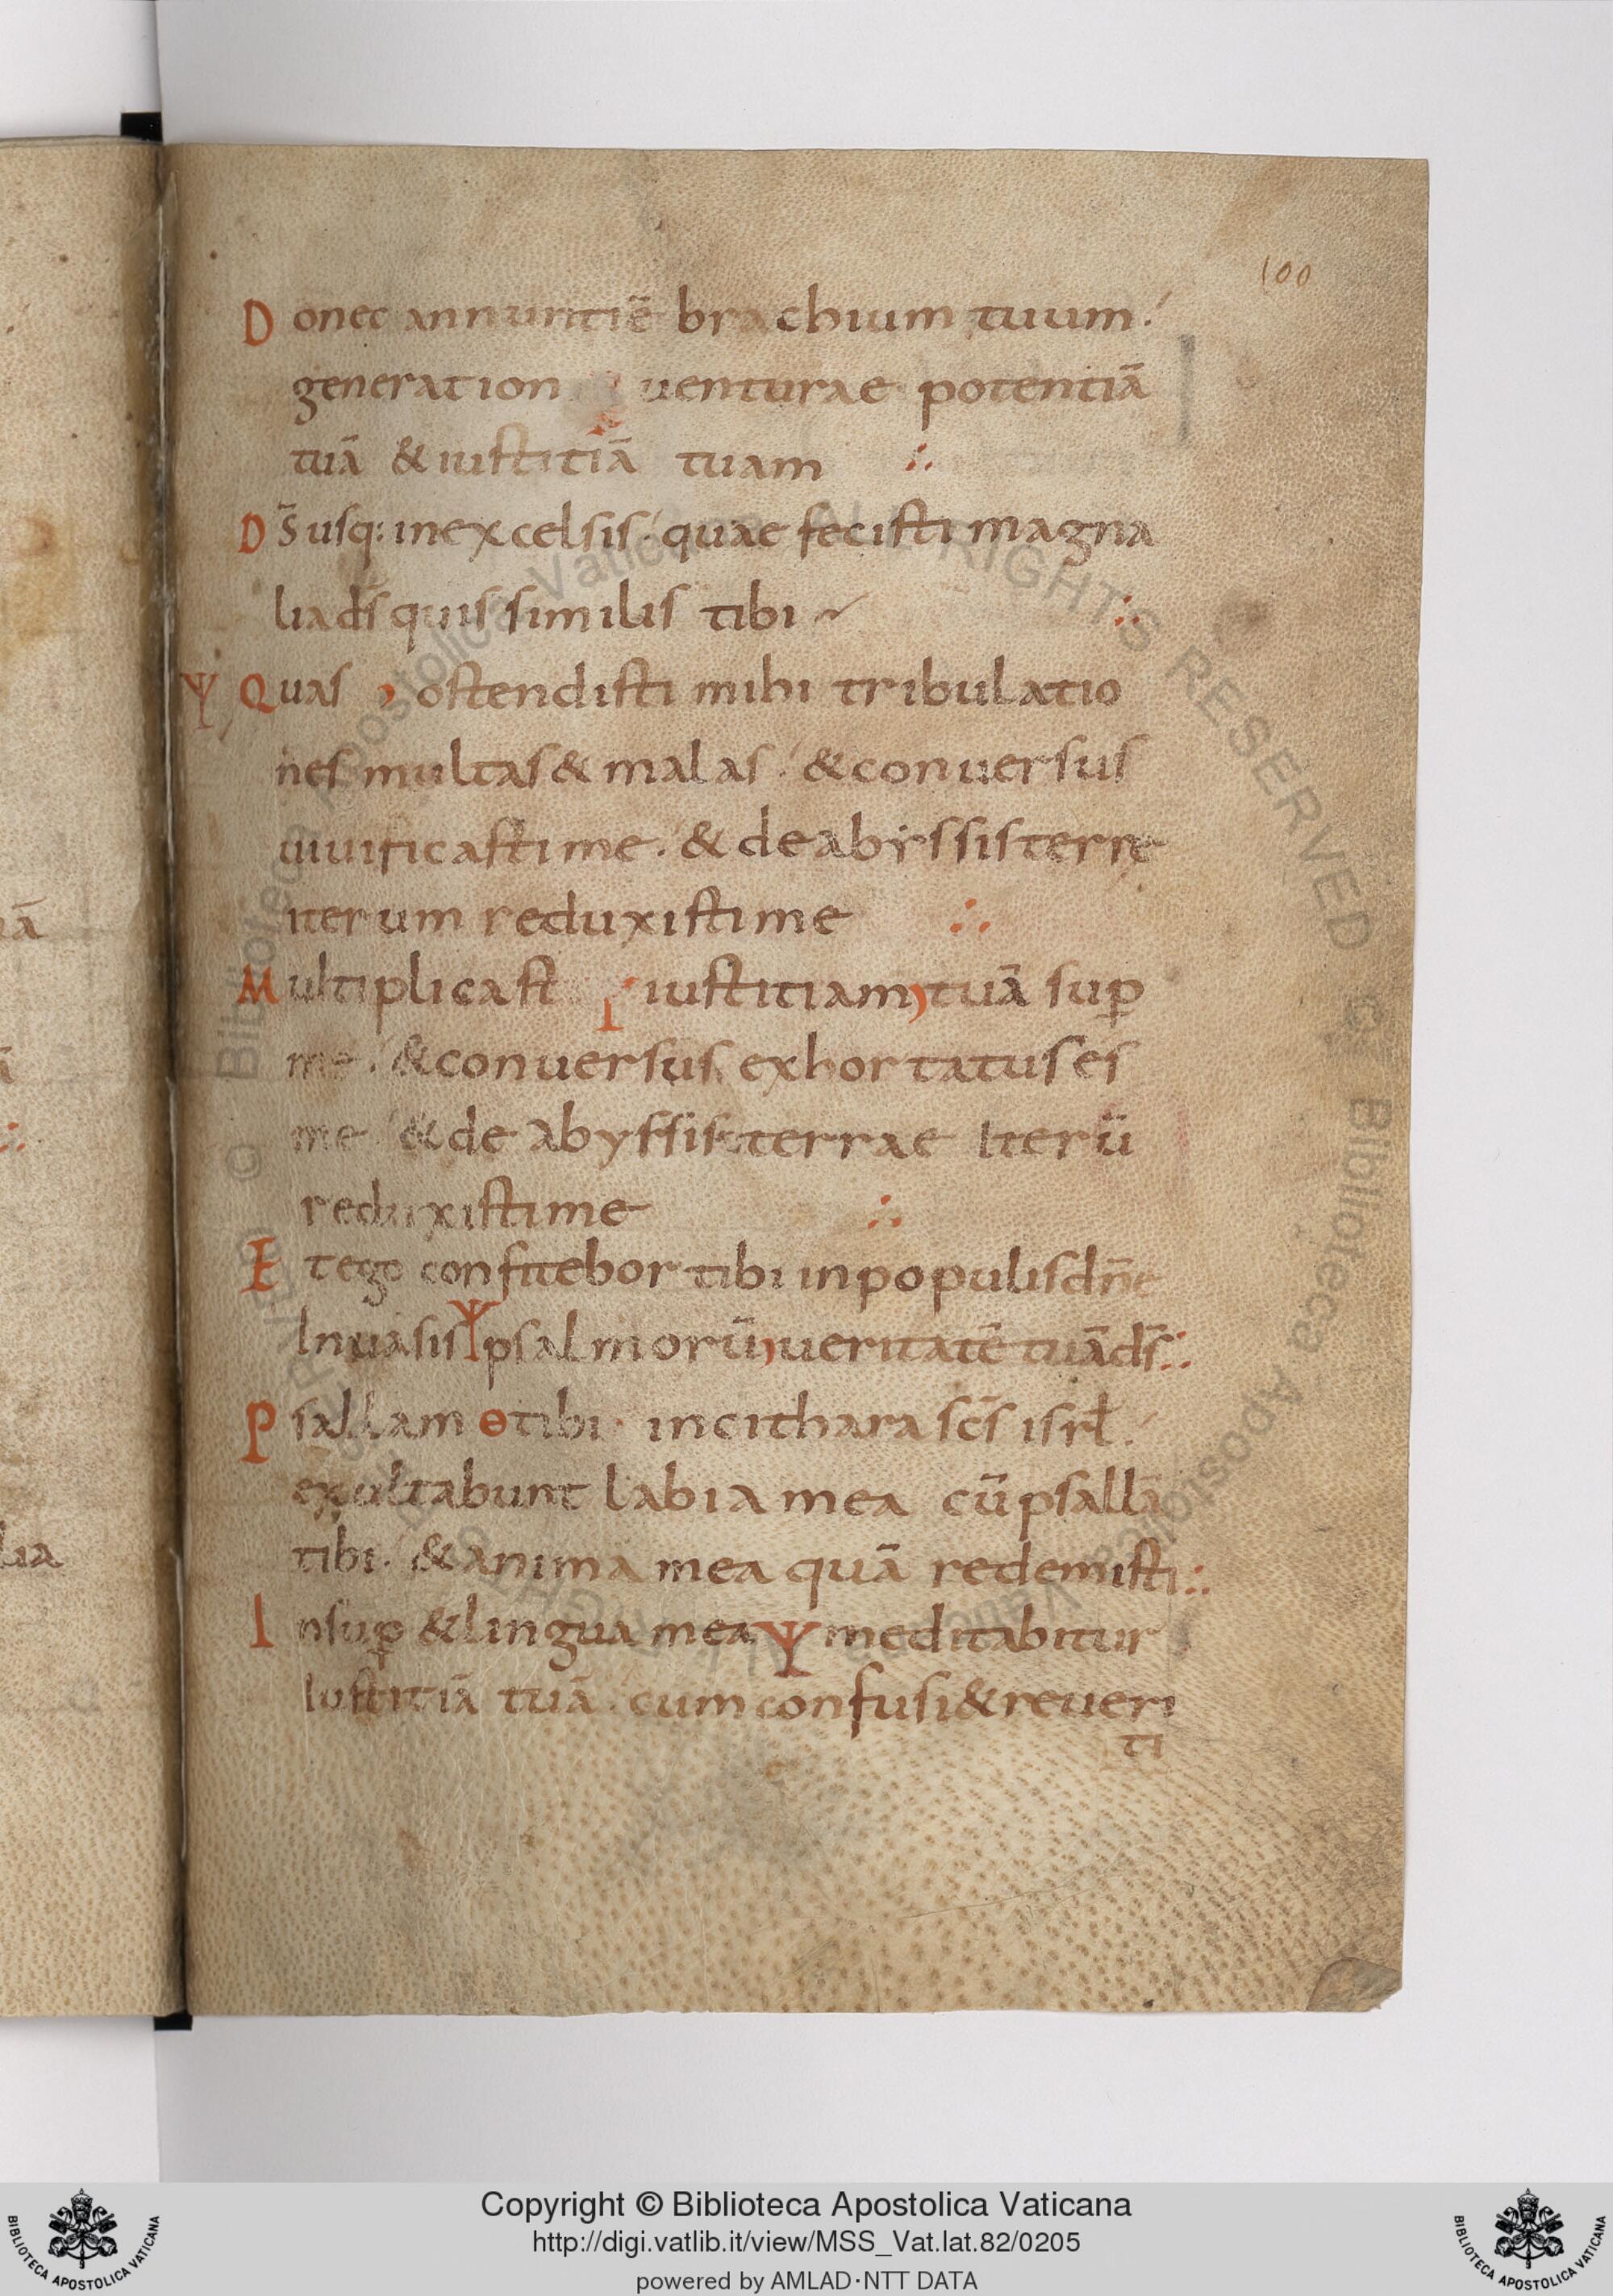 100
Donec annuntiē brachium tuum.
generation uenturae potentiā
tuā & iustitiā tuam
Ds̄ usq: inexcelsis. quae fecisti magna
lia ds̄ quis similis tibi
Ψ Quas ostendisti mihi tribulatio
nes multas & malas. & conuersus
uiuificasti me. & de abyssis terrę
iterum reduxisti me
Multiplicast iustitiam tuā sup
me. & conuersus exhortatus es
me & de abyssis terrae Iterū
reduxisti me
Et ego confitebor tibi in populis dn̄e
In uasis Ψ psalmorū ueritatē tuā ds̄
Psallam Θ tibi in cithara scs̄ isrł.
exultabunt labia mea cū psallā
tibi. & anima mea quā redemisti
Insup & lingua mea Ψ meditabitur
Iustitiā tuā. cum confusi & reueri
ti
nā
lia
© Biblioteca Apostolica Vaticana ALL RIGHTS RESERVED
Copyright © Biblioteca Apostolica Vaticana
http://digi.vatlib.it/view/MSS_Vat.lat.82/0205
powered by AMLAD·NTT DATA
BIBLIOTECA APOSTOLICA VATICANA
BIBLIOTECA APOSTOLICA VATICANA